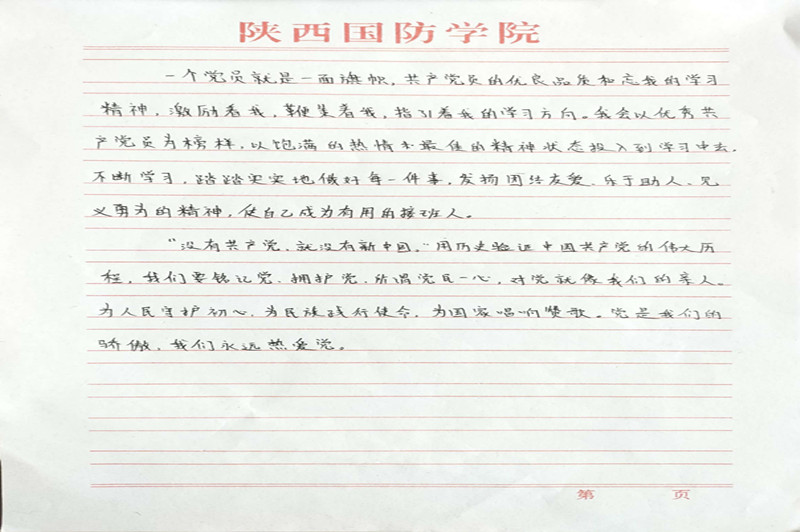 陕西国防学院
一个党员就是一面旗帜，共产党员的优良品质和忘我的学习
精神，激励着我，鞭策着我，指引着我的学习方向。我会以优秀共
产党员为榜样，以饱满的热情和最佳的精神状态投入到学习中去。
不断学习，踏踏实实地做好每一件事，发扬团结友爱、乐于助人、见
义勇为的精神，使自己成为有用的接班人。
“没有共产党，就没有新中国。”用历史验证中国共产党的伟大历
程，我们要铭记党、拥护党，所谓党民一心，对党就像我们的亲人。
为人民守护初心，为民族践行使命，为国家唱响赞歌。党是我们的
骄傲，我们永远热爱党。
第 页